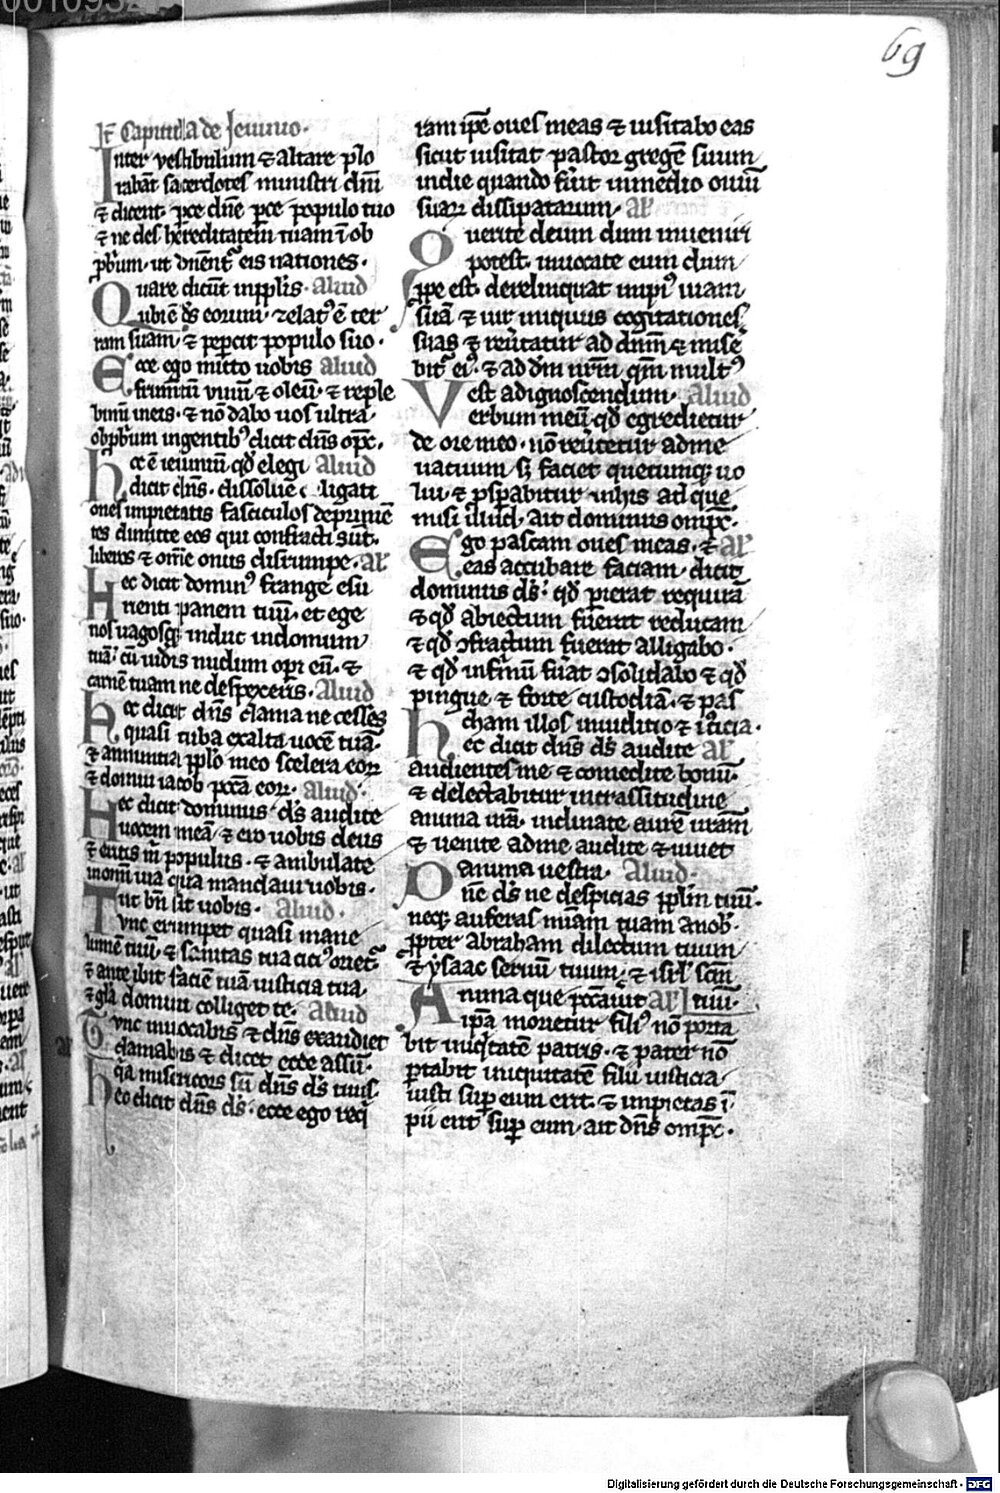 69
It Capitula de Jeiunio.
Inter vestibulum ⁊ altare plo
rabāt sacerdotes ministri dn̄i
⁊ dicent. pce dn̄e pce populo tuo
⁊ ne des hereditatem tuam ī ob
pbrium. ut dn̄ent eis nationes.
Quare dicūt in pplīs. Aliud
ubi ē ds̄ eorum. zelatꝰ ē ter
ram suam. ⁊ pepercit populo suo.
Ecce ego mitto uobis Aliud
frumētū vinū ⁊ oleū. ⁊ reple
bimī in eis. ⁊ nō dabo uos ultra
obpbrium in gentibꝫ dicit dn̄s
hoc ē ieiuniū qd̄ elegi Aliud
dicit dn̄s. dissolue colligati
ones impietatis fasciculos deprimē
tes dimitte eos qui confracti sūt.
liberos ⁊ om̄e onus disrumpe. Al
Hec dicit dominꝰ frange esu
rienti panem tuū. et ege
nos uagosqꝫ induc in domum
tuā. cū uidris nudum opi eū. ⁊
carnē tuam ne despexeris. Aliud
hec dicit dn̄s clama ne cesses
quasi tuba exalta uocē tuā.
⁊ annuntia pplo meo scelera eoꝝ
⁊ domui iacob pccā eoꝝ. Aliud.
Hec dicit dominus ds̄ audite
uocem meā ⁊ ero uobis deus
⁊ eritis m̄ populus. ⁊ ambulate
in om̄i uia qua mandaui uobis.
ut bn̄ sit uobis. Aliud.
Tunc erumpet quasi mane
lumē tuū ⁊ sanitas tua citiꝰ oriet
⁊ ante ibit faciē tuā iusticia tua
⁊ glā domini colliget te. Aliud
Tunc inuocabis ⁊ dn̄s exaudiet
clamabis ⁊ dicet ecce assū.
qa misericors sū dn̄s ds̄ tuus.
hec dicit dn̄s ds̄. ecce ego req
ram ipē oues meas ⁊ uisitabo eas
sicut uisitat pastor gregē suum
in die quando fūit in medio ouiū
suaꝝ dissipatarum. Al
Querite deum dum inueniri
potest. inuocate eum dum
ppe est. derelinquat impiꝰ uiam
suā ⁊ uir iniquus cogitationes
suas ⁊ reūtatur ad dn̄m ⁊ mise
bit eiꝰ. ⁊ ad dm̄ nr̄m qm̄ multꝰ
est ad ignoscendum. Aliud
Verbum meū qd̄ egredietur
de ore meo. nō reūtetur ad me
uacuum. sꝫ faciet quecumqꝫ uo
lui. ⁊ psꝑabitur in his ad que
misi illud. ait dominus
Ego pascam oues meas. ⁊ Al
eas accubare faciam. dicit
dominus ds̄. qd̄ pierat requirā
⁊ qd̄ abiectum fūerit reducam
⁊ qd̄ ꝯfractum fuerat alligabo.
⁊ qd̄ infirmū fūat ꝯsolidabo ⁊ qd̄
pingue. ⁊ forte custodiā. ⁊ pas
cham illos in iuditio ⁊ iticia.
hec dicit dn̄s ds̄ audite Al
audientes me ⁊ comedite bonū.
⁊ delectabitur in crassitudine
anima urā. inclinate aurē urām
⁊ uenite ad me audite ⁊ uiuet
anima vestra. Aliud.
Dn̄e ds̄ ne despicias pplm tuū.
neqꝫ auferas mīam tuam a nob.
ꝓpter abraham dilectum tuum
⁊ ysaac seruū tuum. ⁊ isrl scm̄
Anima que pccauit Al tuū.
ipā morietur filiꝰ nō porta
bit iniqtatē patris. ⁊ pater nō
ꝑtabit iniquitatē filii iusticia
iusti suꝑ eum erit. ⁊ impietas ī
pii erit suꝑ eum. ait dn̄s
Digitalisierung gefördert durch die Deutsche Forschungsgemeinschaft - DFG